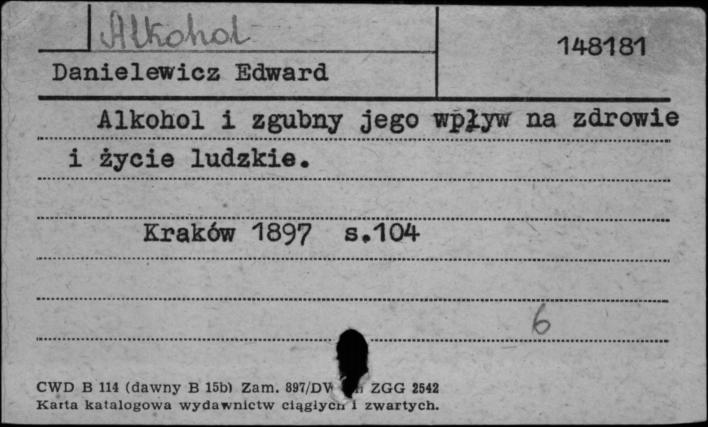 Alkohol
148181
Danielewicz Edward
Alkohol i zgubny jego wpływ na zdrowie
i życie ludzkie.
Kraków 1897 s.104
6
CWD B 114 (dawny B 15b) Zam. 897/DW ZGG 2542
Karta katalogowa wydawnictw ciągłych i zwartych.